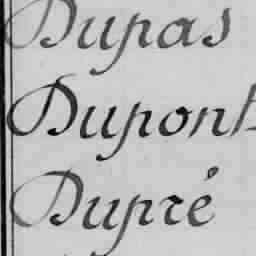 Dupas
Dupont
Dupré